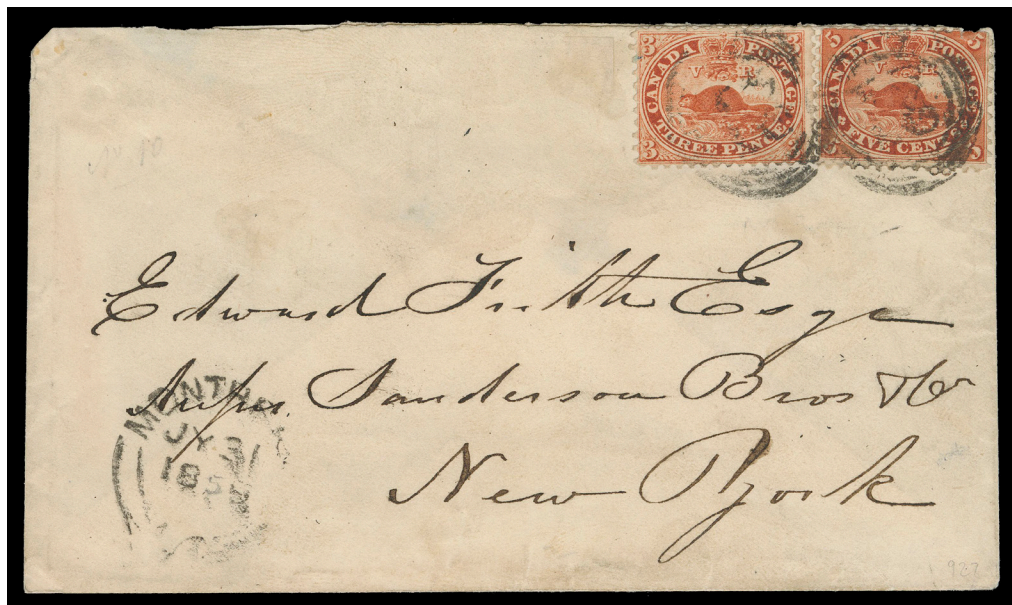 3 3
CANADA POSTAGE
V R
THREE PENCE.
3
5 5
CANADA POSTAGE
V R
FIVE CENTS
5 5
Edward Frith Esqr
Sanderson Bros & Co
New York
MONTRE
JY 31
185
927